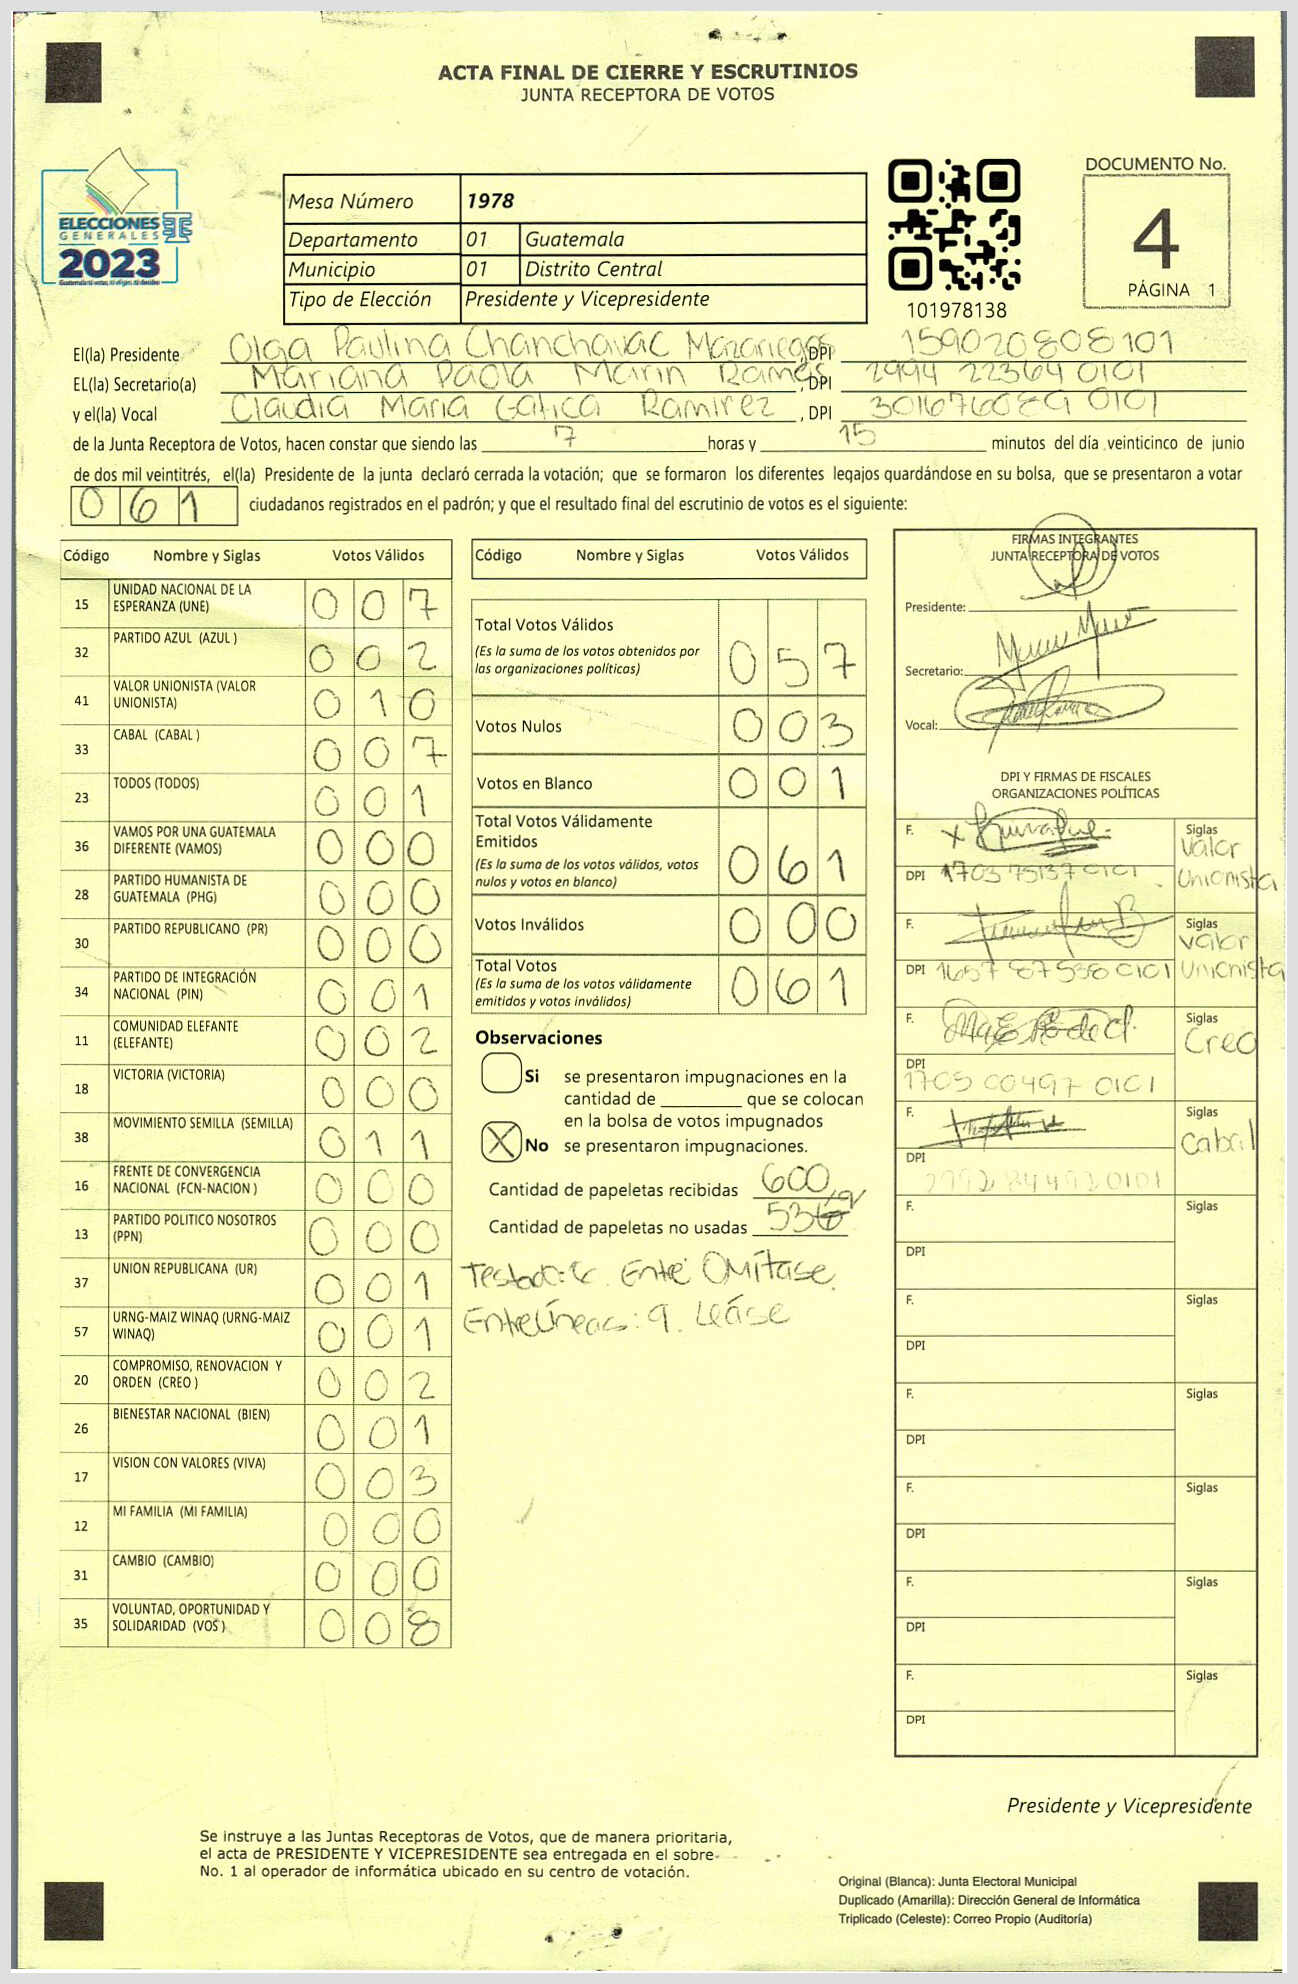 ACTA FINAL DE CIERRE Y ESCRUTINIOS
JUNTA RECEPTORA DE VOTOS
ELECCIONES
GENERALES
2023
Mesa Número 1978
Departamento 01 Guatemala
Municipio 01 Distrito Central
Tipo de Elección Presidente y Vicepresidente
101978138
DOCUMENTO No.
4
PÁGINA 1
El(la) Presidente Olga Paulina Chanchavac Mazariegos, DPI 159020808101
EL(la) Secretario(a) Mariana Paola Marin Ramos, DPI 2994 22364 0101
y el(la) Vocal Claudia Maria Gatica Ramirez, DPI 301676089 0101
de la Junta Receptora de Votos, hacen constar que siendo las 7 horas y 15 minutos del día veinticinco de junio
de dos mil veintitrés, el(la) Presidente de la junta declaró cerrada la votación; que se formaron los diferentes legajos guardándose en su bolsa, que se presentaron a votar
061 ciudadanos registrados en el padrón; y que el resultado final del escrutinio de votos es el siguiente:
Código Nombre y Siglas Votos Válidos
15 UNIDAD NACIONAL DE LA ESPERANZA (UNE) 007
32 PARTIDO AZUL (AZUL ) 002
41 VALOR UNIONISTA (VALOR UNIONISTA) 010
33 CABAL (CABAL ) 007
23 TODOS (TODOS) 001
36 VAMOS POR UNA GUATEMALA DIFERENTE (VAMOS) 000
28 PARTIDO HUMANISTA DE GUATEMALA (PHG) 000
30 PARTIDO REPUBLICANO (PR) 000
34 PARTIDO DE INTEGRACIÓN NACIONAL (PIN) 001
11 COMUNIDAD ELEFANTE (ELEFANTE) 002
18 VICTORIA (VICTORIA) 000
38 MOVIMIENTO SEMILLA (SEMILLA) 011
16 FRENTE DE CONVERGENCIA NACIONAL (FCN-NACION ) 000
13 PARTIDO POLITICO NOSOTROS (PPN) 000
37 UNION REPUBLICANA (UR) 001
57 URNG-MAIZ WINAQ (URNG-MAIZ WINAQ) 001
20 COMPROMISO, RENOVACION Y ORDEN (CREO ) 002
26 BIENESTAR NACIONAL (BIEN) 001
17 VISION CON VALORES (VIVA) 003
12 MI FAMILIA (MI FAMILIA) 000
31 CAMBIO (CAMBIO) 000
35 VOLUNTAD, OPORTUNIDAD Y SOLIDARIDAD (VOS ) 008
Código Nombre y Siglas Votos Válidos
Total Votos Válidos 057
(Es la suma de los votos obtenidos por
las organizaciones políticas)
Votos Nulos 003
Votos en Blanco 001
Total Votos Válidamente
Emitidos 061
(Es la suma de los votos válidos, votos
nulos y votos en blanco)
Votos Inválidos 000
Total Votos 061
(Es la suma de los votos válidamente
emitidos y votos inválidos)
Observaciones
Si se presentaron impugnaciones en la
cantidad de ________ que se colocan
en la bolsa de votos impugnados
X No se presentaron impugnaciones.
Cantidad de papeletas recibidas 600
9
Cantidad de papeletas no usadas 536
Testado: 6. Entre Omítase.
Entrelíneas: 9. Leáse
FIRMAS INTEGRANTES
JUNTA RECEPTORA DE VOTOS
Presidente:
Secretario:
Vocal:
DPI Y FIRMAS DE FISCALES
ORGANIZACIONES POLÍTICAS
F. Siglas Valor
DPI 1703 75137 0101 Unionista
F. Siglas Valor
DPI 1657 87538 0101 Unionista
F. Siglas Creo
DPI 1705 00497 0101
F. Siglas Cabal
DPI 2992 84492 0101
F. Siglas
DPI
F. Siglas
DPI
F. Siglas
DPI
F. Siglas
DPI
F. Siglas
DPI
F. Siglas
DPI
Presidente y Vicepresidente
Se instruye a las Juntas Receptoras de Votos, que de manera prioritaria,
el acta de PRESIDENTE Y VICEPRESIDENTE sea entregada en el sobre
No. 1 al operador de informática ubicado en su centro de votación.
Original (Blanca): Junta Electoral Municipal
Duplicado (Amarilla): Dirección General de Informática
Triplicado (Celeste): Correo Propio (Auditoría)